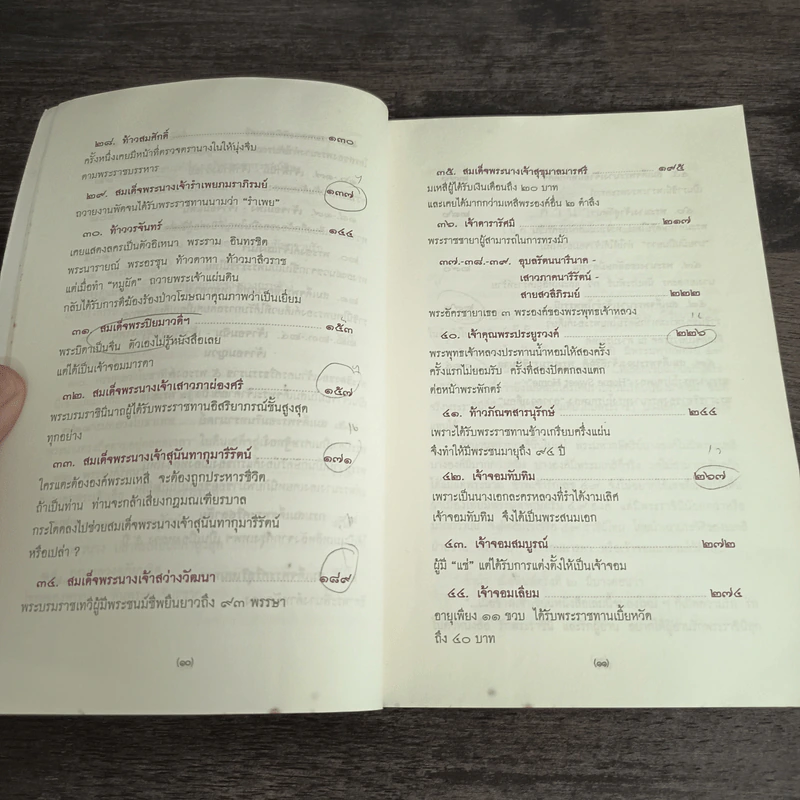 ๒๘. ท้าวสมศักดิ์ ๑๓๐
ครั้งหนึ่งเคยมีหน้าที่ตรวจตรานางในให้นุ่งจีบ
ตามพระราชบรรหาร
๒๙. สมเด็จพระนางเจ้ารำเพยภมราภิรมย์ ๑๓๗
ถวายงานพัดจนได้รับพระราชทานนามว่า "รำเพย"
๓๐. ท้าววรจันทร์ ๑๔๔
เคยแสดงละครเป็นตัวอิเหนา พระราม อินทรชิต
พระนารายณ์ พระอรชุน ท้าวดาหา ท้าวมาลีวราช
แต่เมื่อทำ "หมูผัด" ถวายพระเจ้าแผ่นดิน
กลับได้รับการตีฆ้องร้องป่าวโฆษณาคุณภาพว่าเป็นเยี่ยม
๓๑. สมเด็จพระปิยมาวดีฯ ๑๕๓
พระบิดาเป็นจีน ตัวเองไม่รู้หนังสือเลย
แต่ได้เป็นเจ้าจอมมารดา
๓๒. สมเด็จพระนางเจ้าเสาวภาผ่องศรี ๑๕๗
พระบรมราชินีนาถผู้ได้รับพระราชทานอิสริยาภรณ์ชั้นสูงสุด
ทุกอย่าง
๓๓. สมเด็จพระนางเจ้าสุนันทากุมารีรัตน์ ๑๗๑
ใครแตะต้ององค์พระมเหสี จะต้องถูกประหารชีวิต
ถ้าเป็นท่าน ท่านจะกล้าเสี่ยงกฎมณเฑียรบาล
กระโดดลงไปช่วยสมเด็จพระนางเจ้าสุนันทากุมารีรัตน์
หรือเปล่า ?
๓๔. สมเด็จพระนางเจ้าสว่างวัฒนา ๑๘๙
พระบรมราชเทวีผู้มีพระชนม์ชีพยืนยาวถึง ๙๓ พรรษา
(๑๐)
๓๕. สมเด็จพระนางเจ้าสุขุมาลมารศรี ๑๙๕
มเหสีผู้ได้รับเงินเดือนถึง ๒๐ บาท
และเคยได้มากกว่ามเหสีพระองค์อื่น ๒ ตำลึง
๓๖. เจ้าดารารัศมี ๒๑๗
พระราชชายาผู้สามารถในการทรงม้า
๓๗-๓๘-๓๙. อุบลรัตนนารีนาค -
เสาวภาคนารีรัตน์ -
สายสวลีภิรมย์ ๒๒๒
พระอัครชายาเธอ ๓ พระองค์ของพระพุทธเจ้าหลวง
๔๐. เจ้าคุณพระประยูรวงศ์ ๒๒๖
พระพุทธเจ้าหลวงประทานน้ำหอมให้สองครั้ง
ครั้งแรกไม่ยอมรับ ครั้งที่สองปัดตกลงแตก
ต่อหน้าพระพักตร์
๔๑. ท้าวภัณฑสารนุรักษ์ ๒๔๔
เพราะได้รับพระราชทานข้าวเกรียบครึ่งแผ่น
จึงทำให้มีพระชนมายุถึง ๙๔ ปี
๔๒. เจ้าจอมทับทิม ๒๖๗
เพราะเป็นนางเอกละครหลวงที่รำได้งามเลิศ
เจ้าจอมทับทิม จึงได้เป็นพระสนมเอก
๔๓. เจ้าจอมสมบูรณ์ ๒๗๒
ผู้มี "แซ่" แต่ได้รับการแต่งตั้งให้เป็นเจ้าจอม
๔๔. เจ้าจอมเลียม ๒๗๔
อายุเพียง ๑๑ ขวบ ได้รับพระราชทานเบี้ยหวัด
ถึง ๔๐ บาท
(๑๑)